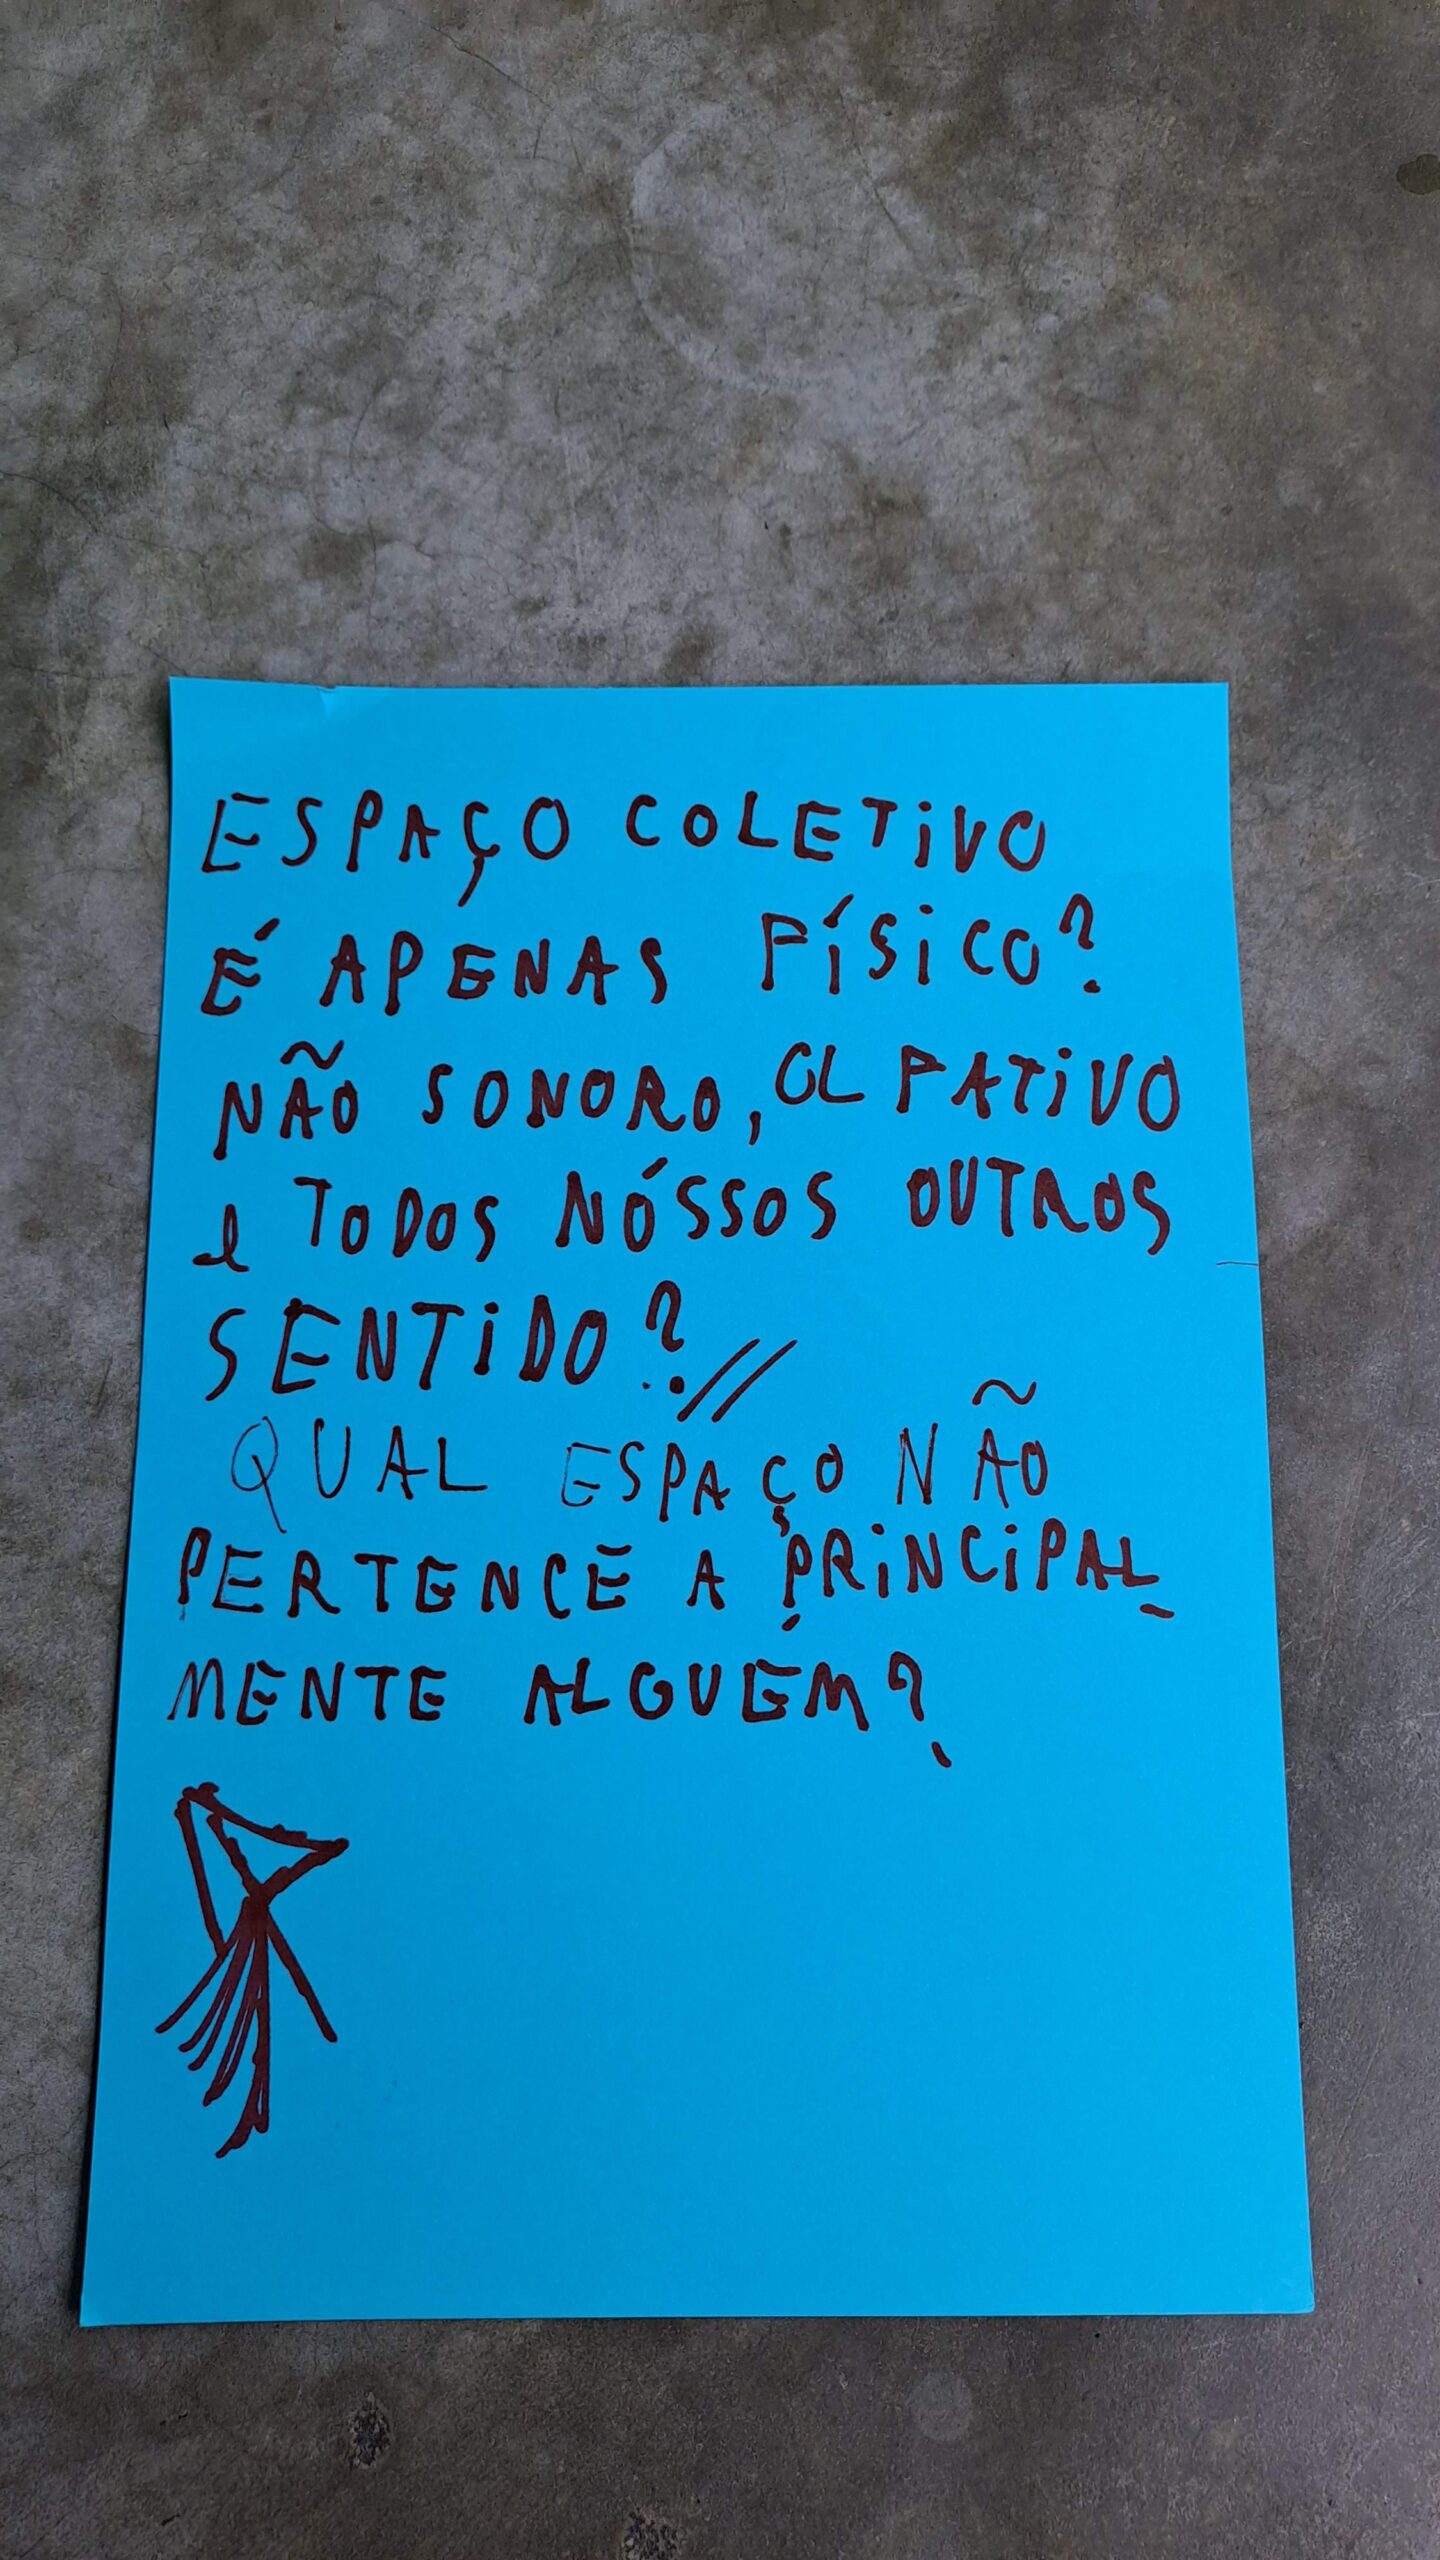 ESPAÇO COLETIVO
É APENAS FÍSICO?
NÃO SONORO, OLFATIVO
e TODOS NÓSSOS OUTROS
SENTIDO? //
QUAL ESPAÇO NÃO
PERTENCE A PRINCIPAL-
MENTE ALGUÉM?